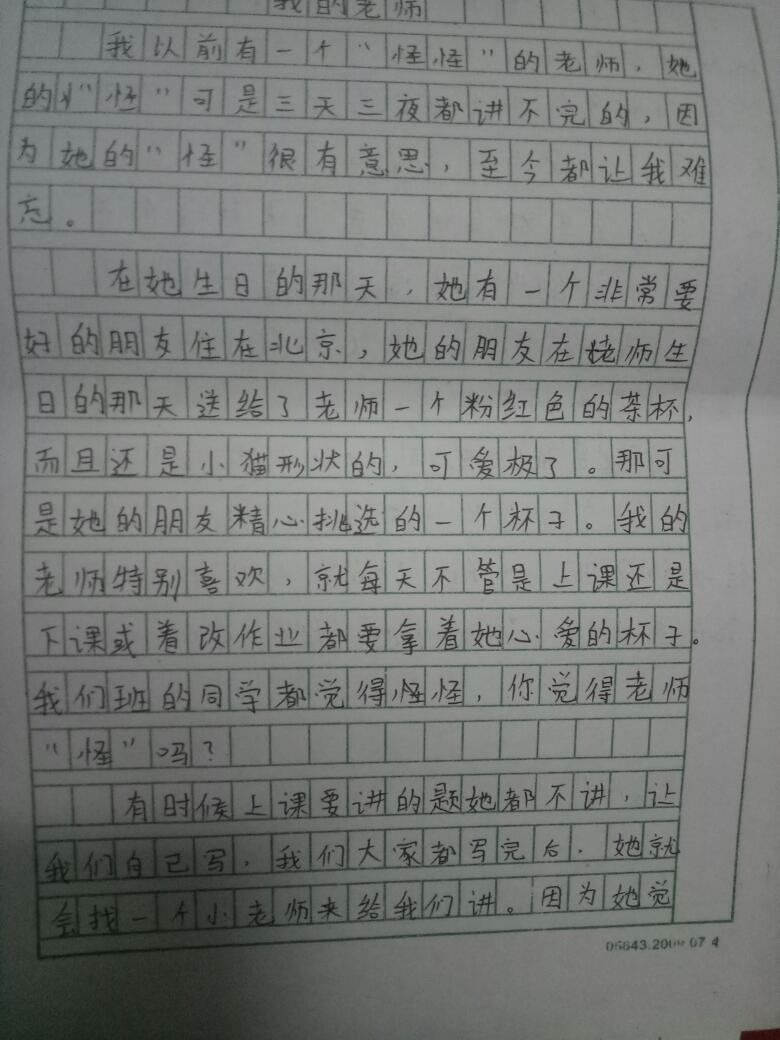 我的老师
我以前有一个“怪怪”的老师，她
的“怪”可是三天三夜都讲不完的，因
为她的“怪”很有意思，至今都让我难
忘。
在她生日的那天，她有一个非常要
好的朋友住在北京，她的朋友在老师生
日的那天送给了老师一个粉红色的茶杯，
而且还是小猫形状的，可爱极了。那可
是她的朋友精心挑选的一个杯子。我的
老师特别喜欢，就每天不管是上课还是
下课或着改作业都要拿着她心爱的杯子。
我们班的同学都觉得怪怪，你觉得老师
“怪”吗？
有时候上课要讲的题她都不讲，让
我们自己写，我们大家都写完后，她就
会找一个小老师来给我们讲。因为她觉
05643.2009 07 4